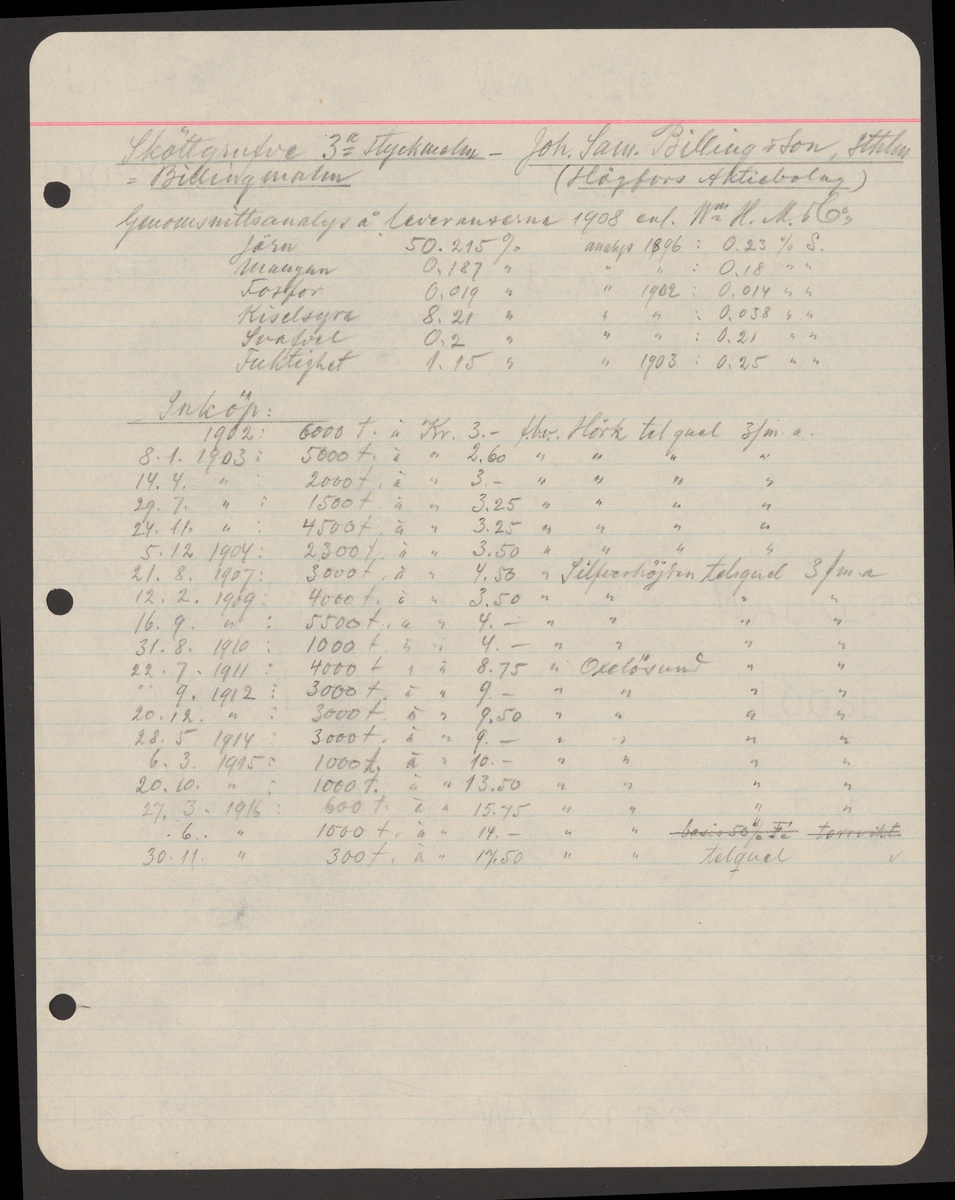 Sköttgrufve 3:a Styckmalm – Joh. Sam. Billing & Son, Sthlm
= Billingmalm (Högfors Aktiebolag)
Genomsnittsanalys å leveranserna 1908 enl. Wm H. M. & Co:
Järn 50.215 % analys 1896 : 0.23 % S.
Mangan 0.187 " " " : 0.18 " "
Fosfor 0.019 " " 1902 : 0.014 " "
Kiselsyra 8.21 " " " : 0.038 " "
Svafvel 0.2 " " " : 0.21 " "
Fuktighet 1.15 " " 1903 : 0.25 " "
Inköp:
1902: 6000 t. à Kr. 3.– fbv. Hörk tel quel 3/m. a.
8. 1. 1903: 5000 t. à " 2.60 " " " "
14. 4. " : 2000 t. à " 3.– " " " "
29. 7. " : 1500 t. à " 3.25 " " " "
24. 11. " : 4500 t. à " 3.25 " " " "
5. 12 1904: 2300 t. à " 3.50 " " " "
21. 8. 1907: 3000 t. à " 4.50 " Silfverhöjden telquel 3/m. a
12. 2. 1909: 4000 t. à " 3.50 " " " "
16. 9. " : 5500 t. à " 4.– " " " "
31. 8. 1910 : 1000 t à " 4.– " " " "
22. 7. 1911 : 4000 t à " 8.75 " Oxelösund " "
" 9. 1912 : 3000 t. à " 9.– " " " "
20. 12. " : 3000 t. à " 9.50 " " " "
28. 5 1914 : 3000 t. à " 9.– " " " "
6. 3. 1915 : 1000 t. à " 10.– " " " "
20. 10. " : 1000 t. à " 13.50 " " " "
27. 3. 1916 : 600 t. à " 15.75 " " " "
. 6. " 1000 t. à " 14.– " " basis 50% Fe torrvikt
30. 11. " 300 t. à " 17.50 " " telquel ✓